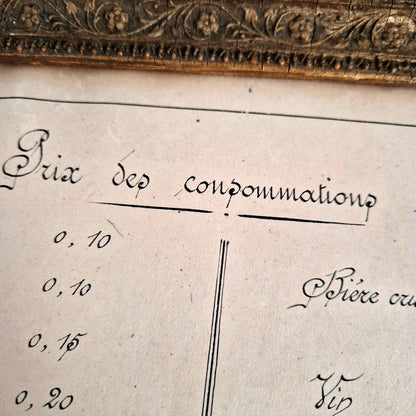 Prix des consommations
0,10
0,10 Bière
0,15
0,20 Vin